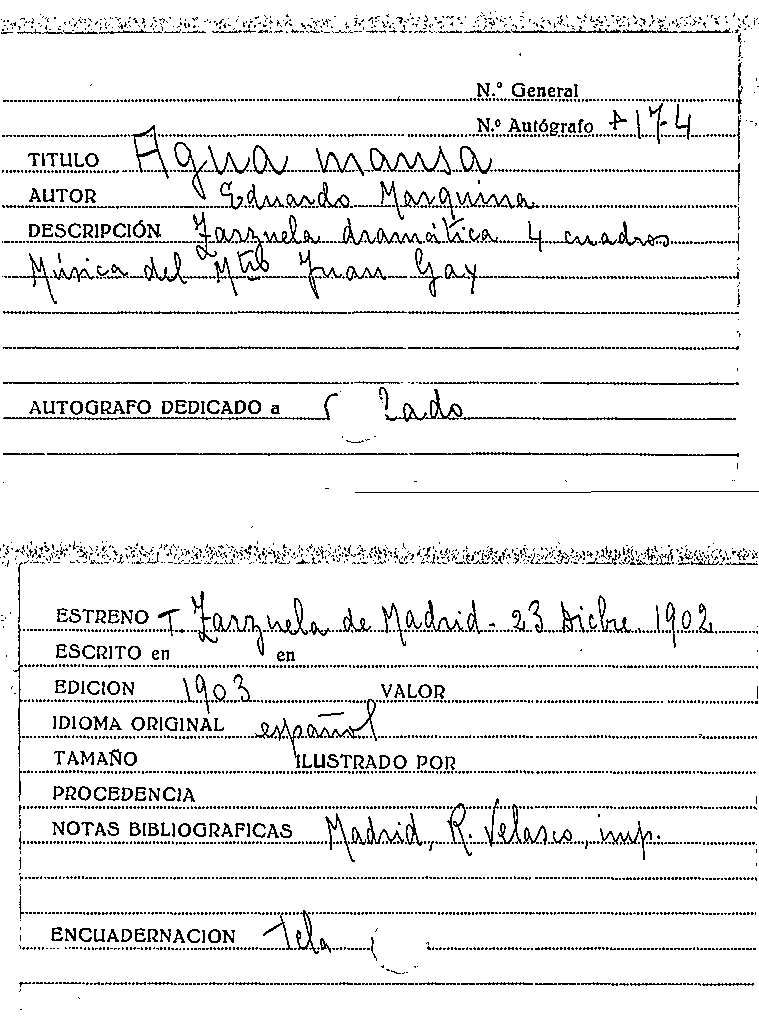 N.º General
N.º Autógrafo A-174
TITULO Agua mansa
AUTOR Eduardo Marquina
DESCRIPCIÓN Zarzuela dramática 4 cuadros
Música del Mtro Juan Gay
AUTOGRAFO DEDICADO a
ESTRENO T. Zarzuela de Madrid - 23 Dicbre. 1902
ESCRITO en en
EDICION 1903 VALOR
IDIOMA ORIGINAL español
TAMAÑO ILUSTRADO POR
PROCEDENCIA
NOTAS BIBLIOGRAFICAS Madrid, R. Velasco, imp.
ENCUADERNACION Tela